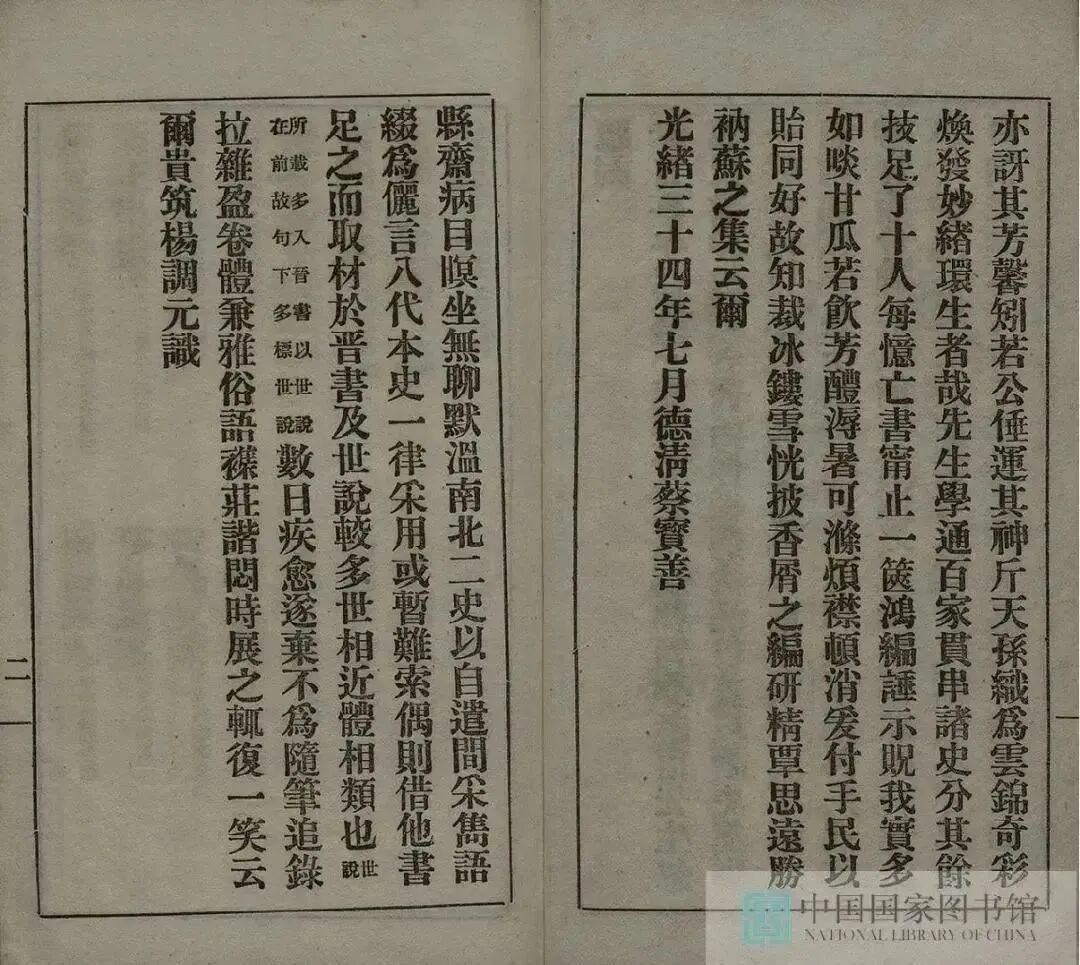 亦訝其芳馨矧若公倕運其神斤天孫織爲雲錦奇彩
煥發妙緒環生者哉先生學通百家貫串諸史分其餘
技足了十人每憶亡書甯止一篋鴻編誰示貺我實多
如啖甘瓜若飲芳醴溽暑可滌煩襟頓消爰付手民以
貽同好故知裁冰鏤雪恍披香屑之編研精覃思遠勝
衲蘇之集云爾
光緒三十四年七月德清蔡寶善
縣齋病目瞑坐無聊默溫南北二史以自遣間采雋語
綴爲儷言八代本史一律采用或暫難索偶則借他書
足之而取材於晉書及世說較多世相近體相類也世說
所載多入晉書以世說在前故句下多標世說數日疾愈遂棄不爲隨筆追錄
拉雜盈卷體兼雅俗語襍莊諧悶時展之輒復一笑云
爾貴筑楊調元識
二
中国国家图书馆
NATIONAL LIBRARY OF CHINA